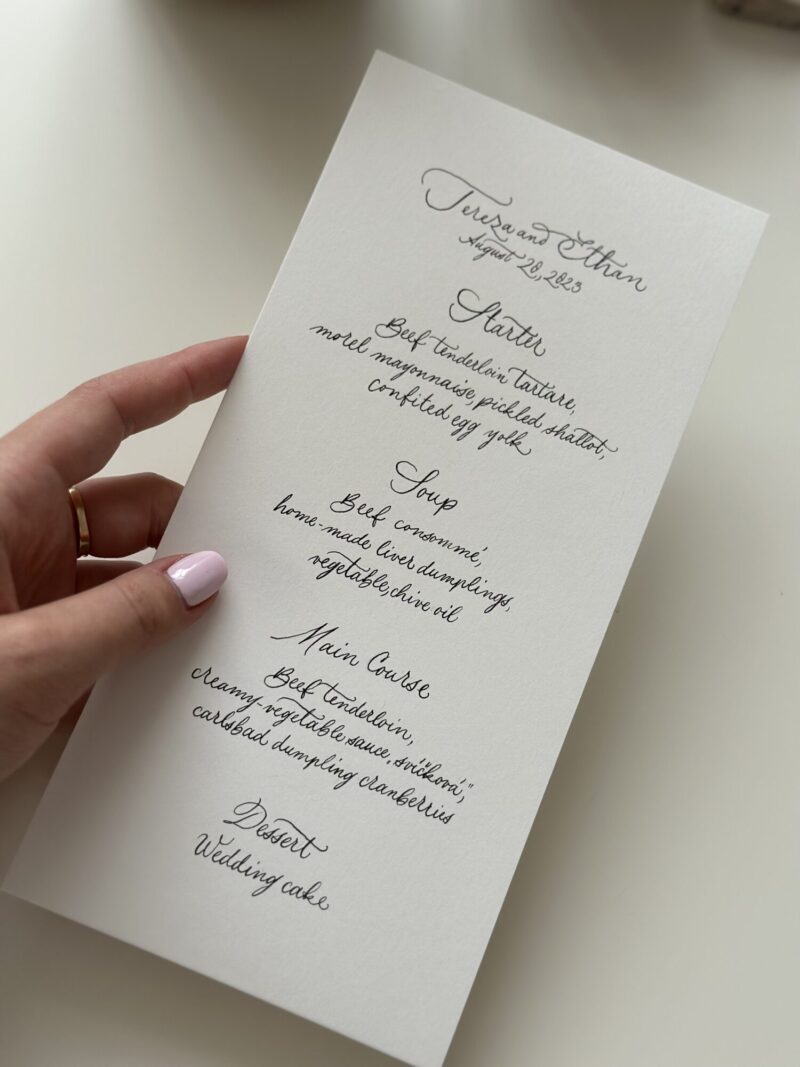 Tereza and Ethan
August 20, 2023
Starter
Beef tenderloin tartare,
morel mayonnaise, pickled shallot,
confited egg yolk
Soup
Beef consommé,
home-made liver dumplings,
vegetable, chive oil
Main Course
Beef tenderloin,
creamy-vegetable sauce „svíčková",
carlsbad dumpling cranberries
Dessert
Wedding cake